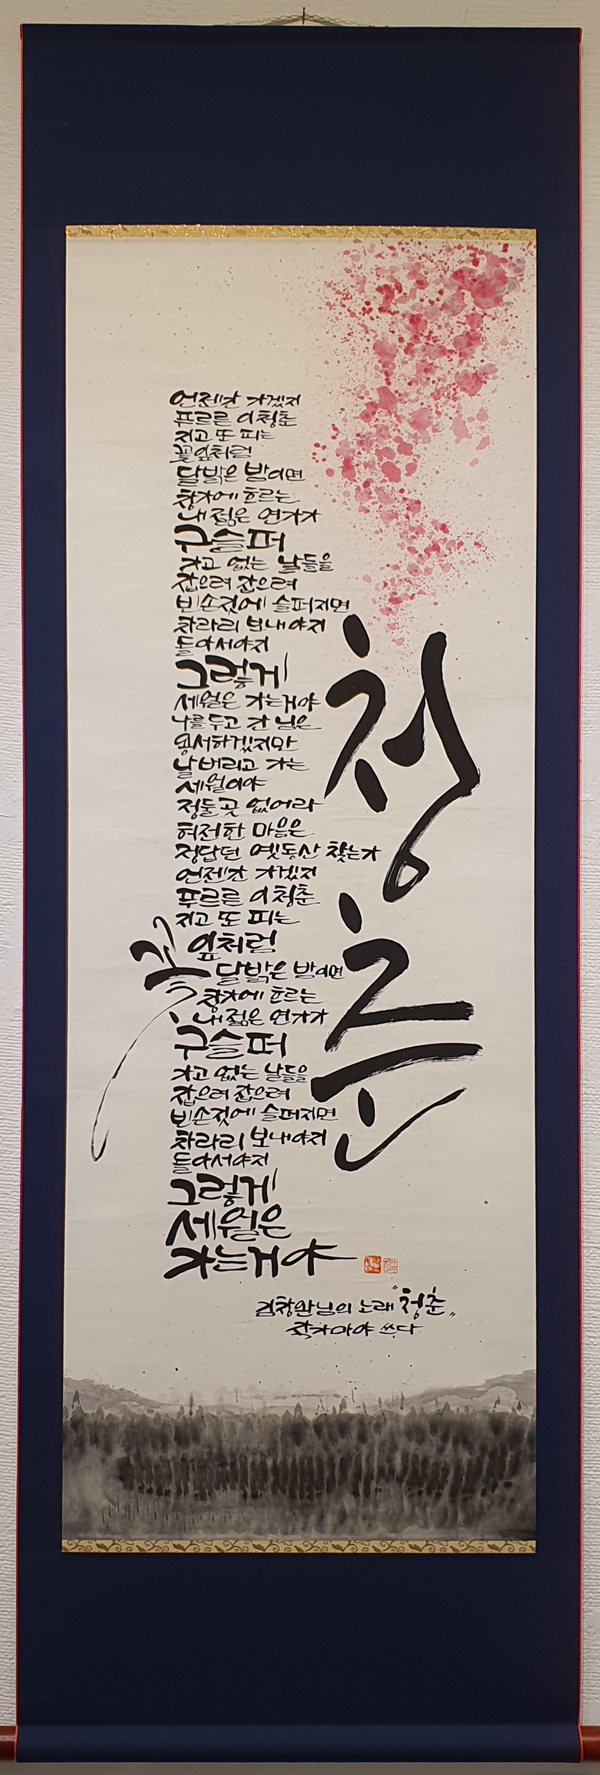 청춘
언젠간 가겠지
푸르른 이 청춘
지고 또 피는
꽃잎처럼
달 밝은 밤이면
창가에 흐르는
내 젊은 연가가
구슬퍼
가고 없는 날들을
잡으려 잡으려
빈손짓에 슬퍼지면
차라리 보내야지
돌아서야지
그렇게
세월은 가는거야
나를 두고 간 님은
용서하겠지만
날 버리고 가는
세월이야
정둘곳 없어라
허전한 마음은
정답던 옛동산 찾는가
언젠간 가겠지
푸르른 이 청춘
지고 또 피는
꽃잎처럼
달 밝은 밤이면
창가에 흐르는
내 젊은 연가가
구슬퍼
가고 없는 날들을
잡으려 잡으려
빈손짓에 슬퍼지면
차라리 보내야지
돌아서야지
그렇게
세월은
가는거야
김창완님의 노래 "청춘"
작가마야 쓰다